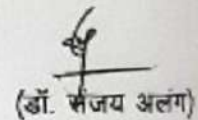 (डॉ. संजय अलंग)